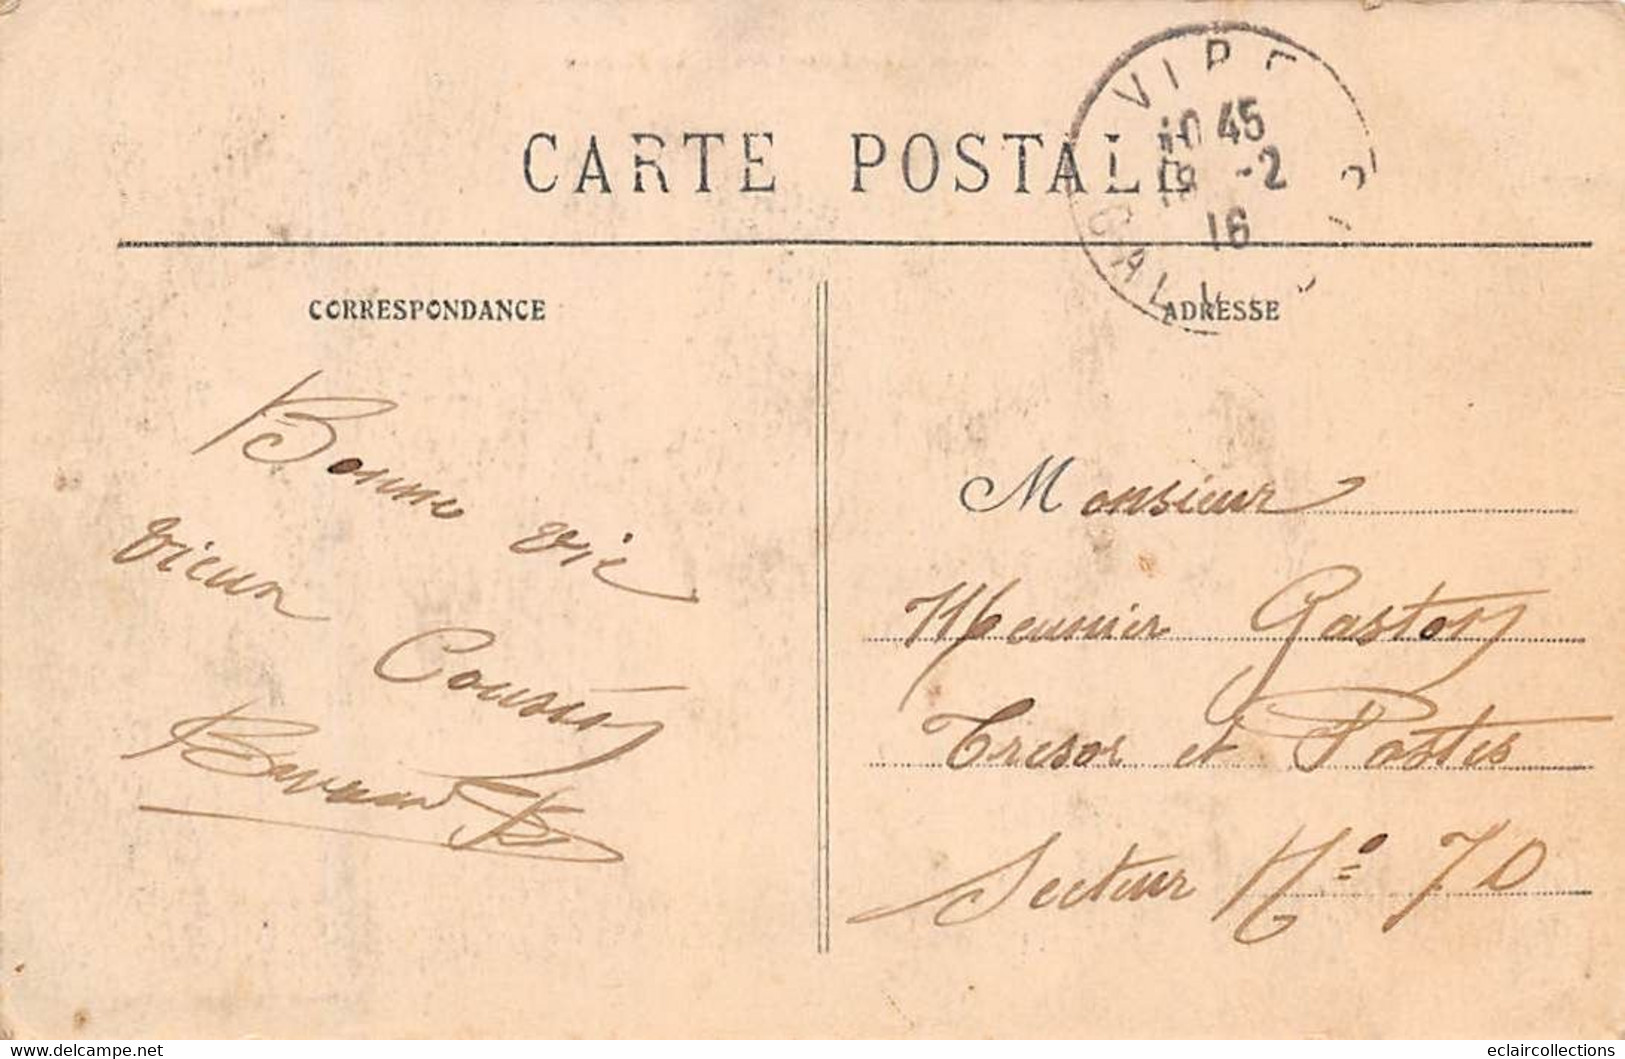 CARTE POSTALE
VIRE
45
-2
16
CALV
CORRESPONDANCE
ADRESSE
Bonne vie
vieux
Cousin
Monsieur
Meunier Gaston
Tresor et Postes
Secteur Nº 70
www.delcampe.net
eclaircollections